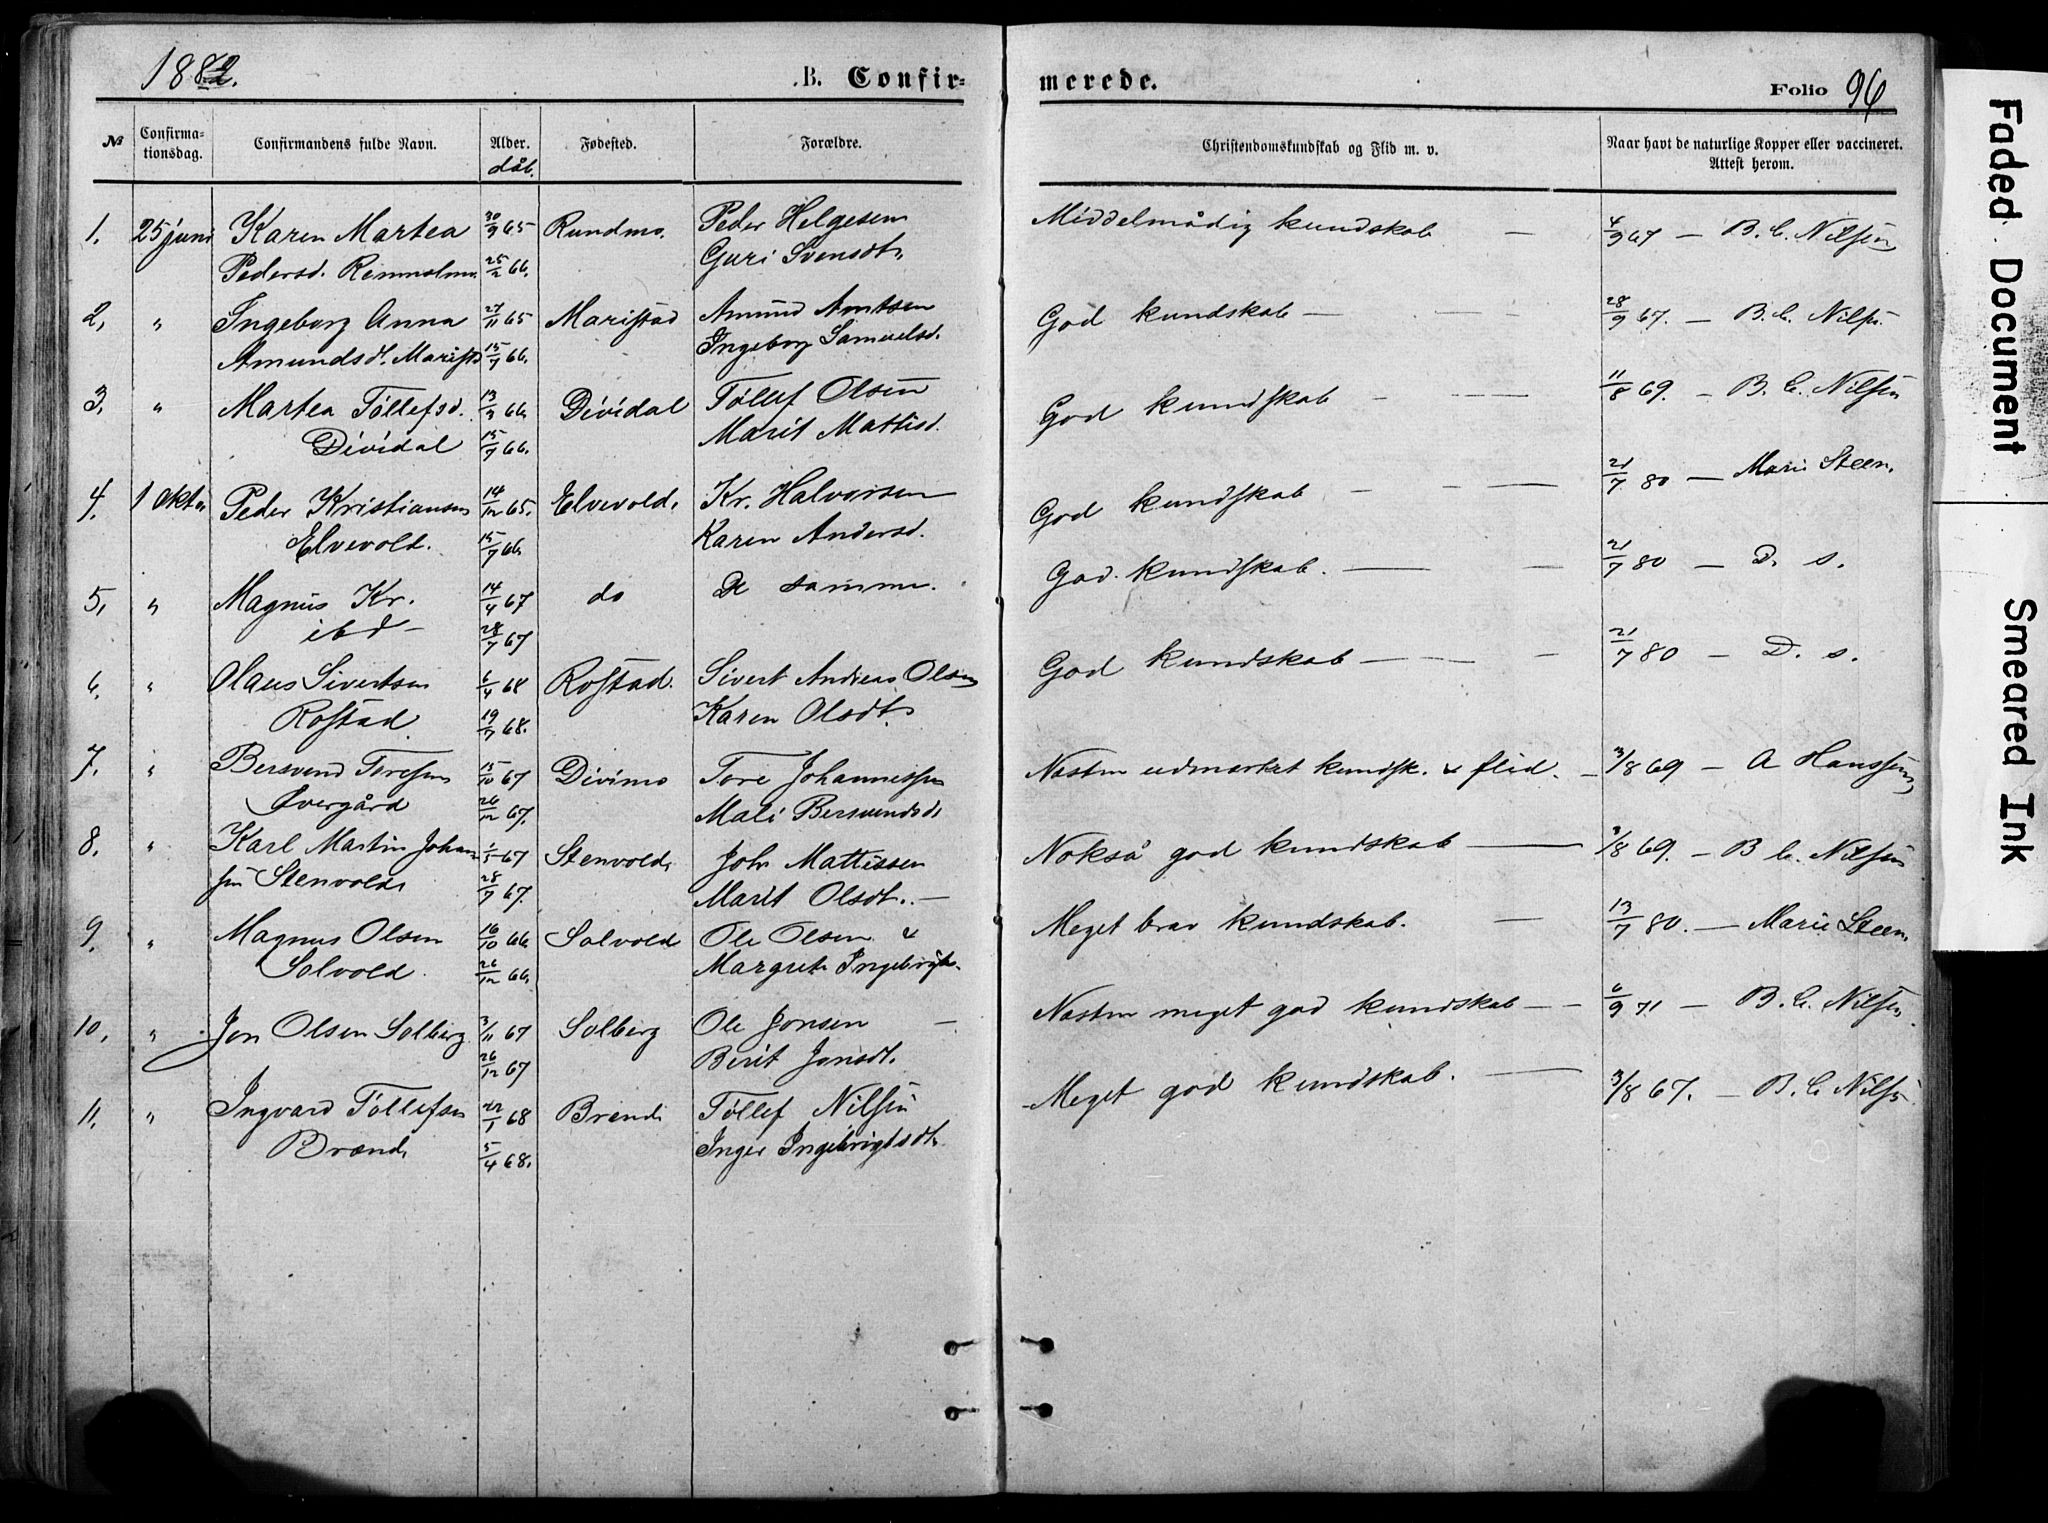 1882.
B. Confirmerede.
Folio 96
№ Confirmationsdag. Confirmandens fulde Navn. Alder. dåb. Fødested. Forældre. Christendomskundskab og Flid m. v. Naar havt de naturlige Kopper eller vaccineret. Attest herom.
1. 25 juni Karen Martea 30/9 65 Rundmo. Peder Helgesen Middelmådig kundskab — 4/9 67 — B. C. Nilsen
Pedersd. 25/2 66. Guri Svensdt.
2, " Ingeborg Anna 27/11 65 Maristad Amund Arntsen God kundskab — 28/9 67. — B. C. Nilsen
Amundsdt. Maristd 15/7 66. Ingeborg Samuelsd.
3, " Martea Tøllefsd. 13/3 66. Dividal Tøllef Olsen God kundskab — 11/8 69. — B. C. Nilsen
Dividal 15/7 66. Marit Mattisd.
4. 1 Oktr Peder Kristiansen 14/12 65. Elvevold. Kr. Halvorsen God kundskab — 21/7 80 — Marie Steen.
Elvevold. 15/7 66 Karen Andersd.
5, " Magnus Kr. 14/4 67 do De samme. God. kundskab. — 21/7 80 — D. s.
ibd — 28/7 67
6. " Olaus Sivertsen 6/4 68 Rostad. Sivert Andreas Olsen God kundskab — 21/7 80 — D. s.
Rostad. 19/7 68. Karen Olsdt.
7. " Bersvend Toresen 15/10 67 Divimo Tore Johannessen Næsten udmærket kundsk. & flid. — 3/8 69 — A Hanssen
Øvergård 26/12 67. Mali Bersvendsdt
8. " Karl Martin Johan 1/5 67 Stenvold. Joh. Mattissen Nokså god kundskab — 3/8 69. — B C. Nilsen
sen Stenvold. 28/7 67. Marit Olsdt. —
9. " Magnus Olsen 16/10 66 Solvold Ole Olsen & Meget brav kundskab. — 13/7 80. — Marie Steen.
Solvold. 26/12 66. Margrete Ingebrigtd.
10. " Jon Olsen Solberg 3/11 67 Solberg Ole Jonsen — Næsten meget god kundskab — 6/9 71 — B. C. Nilsen.
26/12 67 Berit Jonsdt.
11. " Ingvard Tøllefsen 22/1 68 Brænd. Tøllef Nilsen Meget god kundskab. — 3/8 67. — B. C Nilsen
Brænd. 5/4 68. Inger Ingebrigtsdt.
Faded Document
Smeared Ink